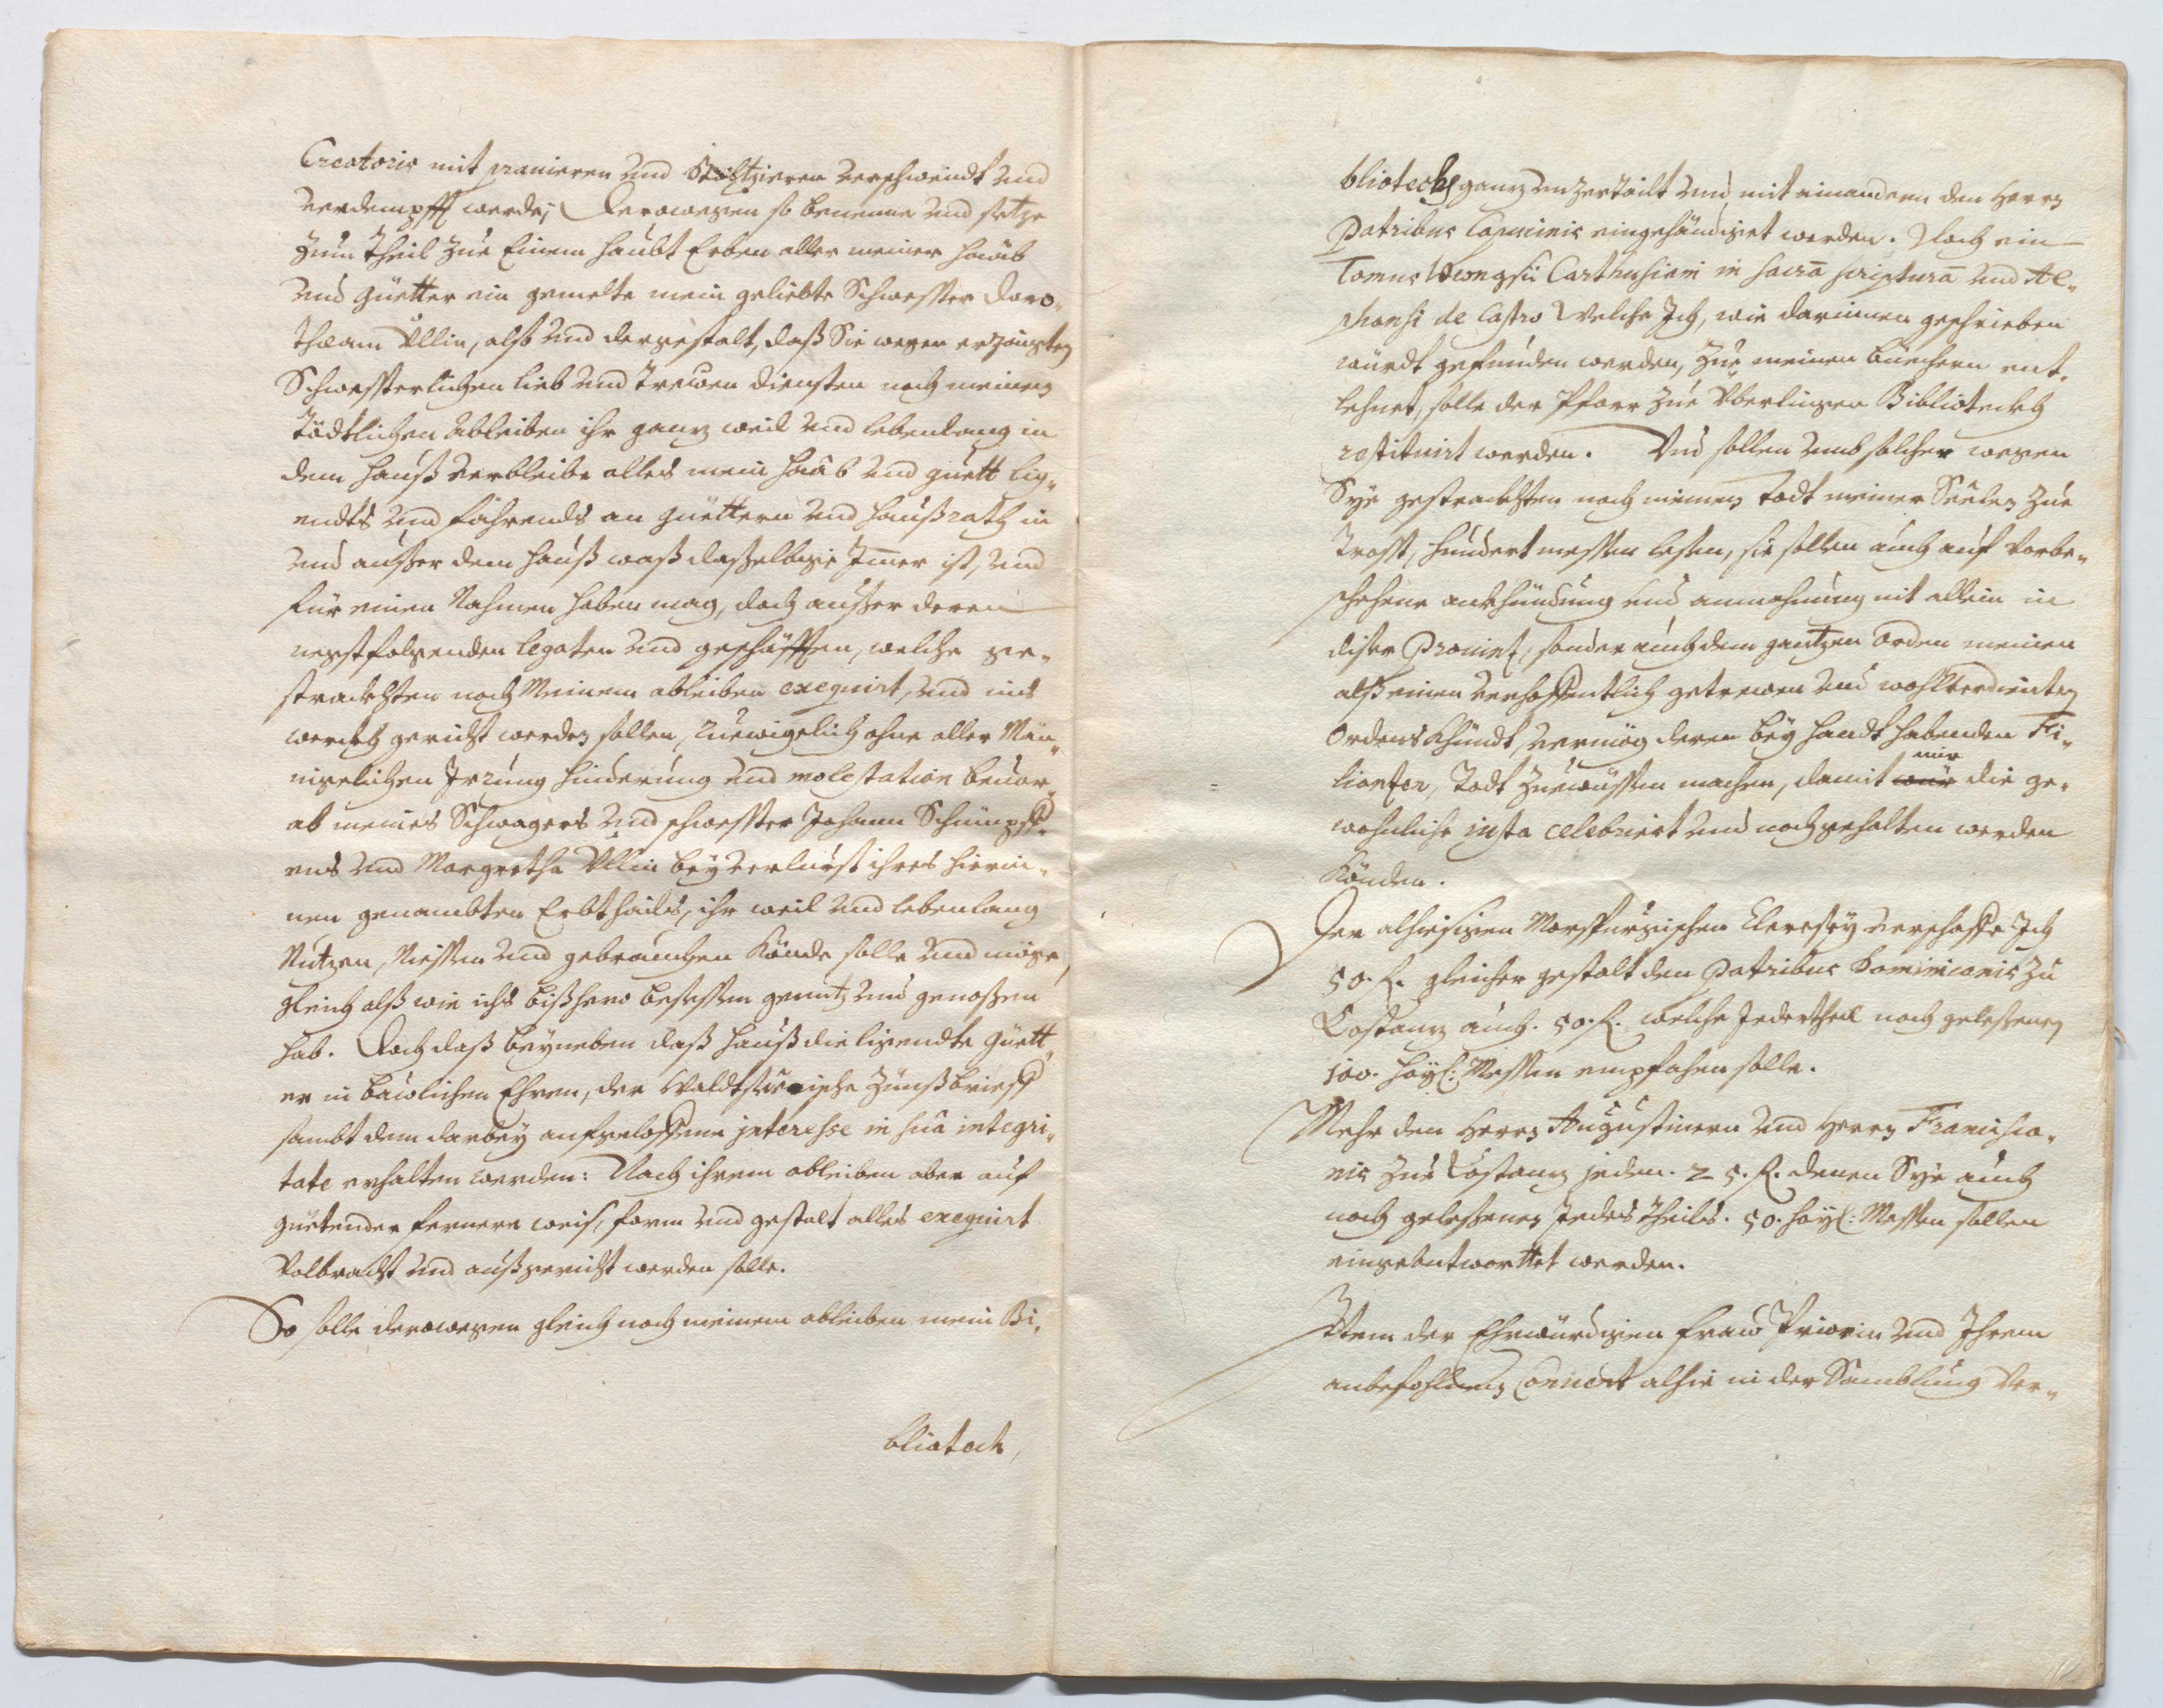 Creatoris mit pravieren und Stoltzieren verschwendt und
verdempfft werde; Derowegen so benenne und setze
Zum Theil zue Einem haubt Erben aller meiner haab
und güetter ein gemelte mein geliebte Schwester Doro„
theam Ullin, also und dergestalt, daß Sie wegen erzaigten
Schwesterlichen lieb und trewen diensten nach meinem
Tödtlichen Ableiben ihr gantz weil und lebenlang in
dem hauß verbleibe alles mein haab und guett lig„
endts und fahrends an güettern und haußrath in
und ausser dem hauß waß dasselbige Jmer ist, und
für einen Nahmen haben mag, doch ausser deren
negstfolgenden legaten und geschäfften, welche ge„
strackhsten nach Meinem ableiben exequirt, und ins
werckh gericht werden sollen, Ruewigelich ohne aller Män„
nigelichen Jrrung hinderung und molestation bevor„
ab meines Schwagers und schwester Johann Schimpff„
ens und Margretha Ullin bey verlurst ihres hierin„
nen genambten Erbtheils, ihr weil und lebenlang
Nutzen, Niessen und gebrauchen könde solle und möge,
gleich alß wie ichs bißhero besessen genutz und genossen
hab. Doch daß beyneben daß hauß die ligendte güett„
er in bawlichen Ehren, der Zünßbrieff
sambt dem darbey aufgeloffenen interesse in sua integri„
tate erhalten werden: Nach ihrem ableiben aber auf
fernere weis, form und gestalt alles exequirt
Volbracht und außgericht werden solle.
So solle derowegen gleich nach meinem ableiben mein Bi„
bliotech,
bliotech gantz unzertailt und mit einandern den herrn
Patribus Capucinis eingehändiget werden. Noch ein
Tomus Dionysii Carthusiani in sacra scriptura und Al„
phonsi de Castro Welche Jch, wie darinnen geschrieben
würdt gefunden werden, zue meinen büechern ent„
lehnet, solle der Pfarr zue Überlingen Bibliotechh
restituirt werden. Und sollen umb solcher wegen
Sye gestrackhsten nach meinem todt meiner Seelen zue
Trost, hundert messen lesen, sie sollen auch auf Vorbe„
schehene ankhündung und anmahnung nit allein in
diser Provintz, sonder auch dem gantzen Orden meinen
alß eines verhoffentlich getrewen und wohlverdienten
Ordens khündt, vermög deren bey handt habenden Fi„
liantzen, Todt zuewüssen machen, damit wür mir die ge„
wohnliche iusta celebriert und nachgehalten werden
könden.
Der alhiesigen Mörspurgischen Clerisey verschaffe Jch
50. fl. gleicher gestalt den Patribus Dominicanis zu
Costantz auch. 50. fl. welche Jedertheil nach gelesenen
100. hayl: Messen empfahen solle.
Mehr den herrn Augustinern und herrn Francisca„
nis zue Costantz jedem. 25. fl. denen Sye auch
nach gelesenen Jedes theils. 50. hayl: Messen sollen
eingeantworttet werden.
Item der Ehrwürdigen fraw Priorin und Jhrem
anbefohlenen Convent alhie in der Samblung Ver„